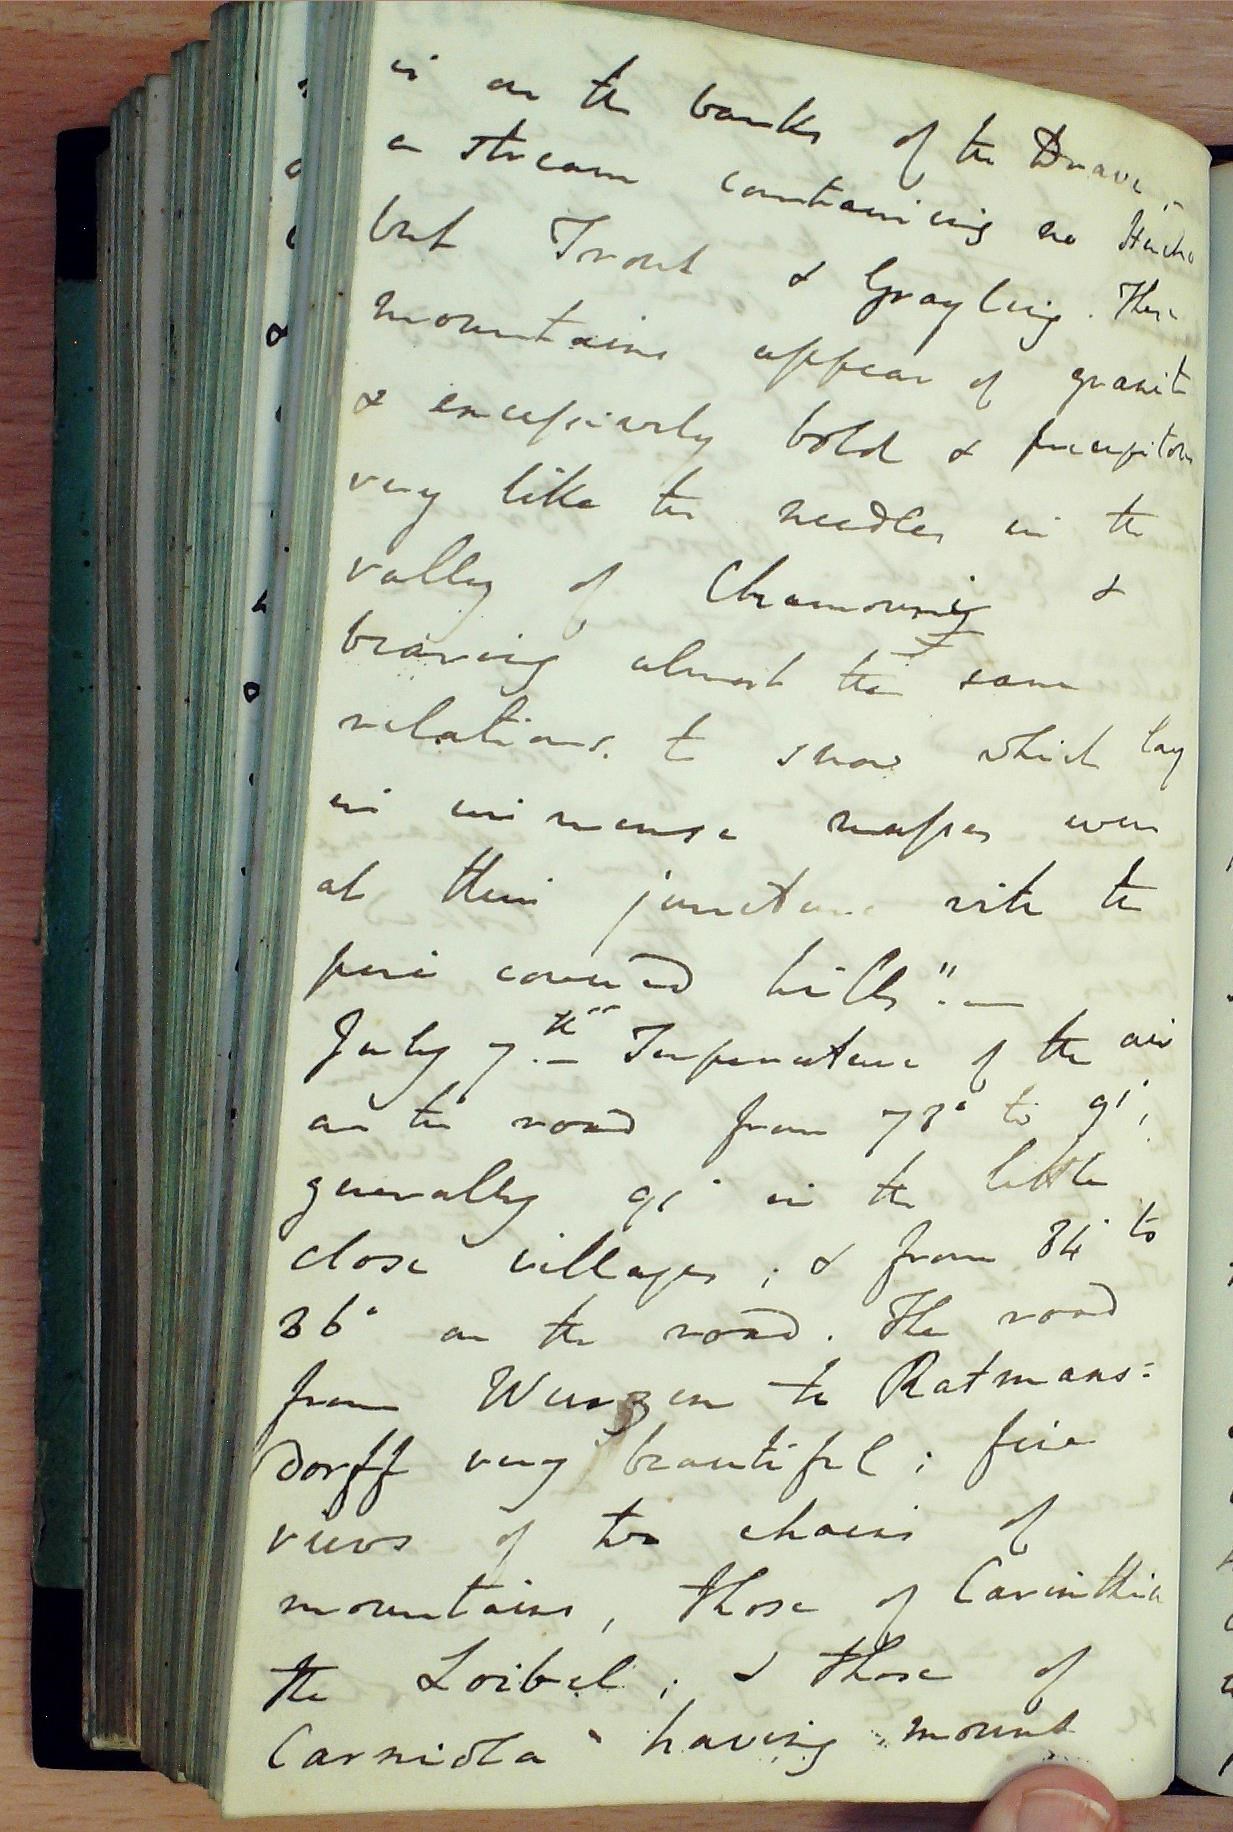 is on the banks of the Drave,
a stream containing no Hucho
but Trout & Grayling. These
mountains appear of granite
& excessively bold & precipitous
very like the needles in the
valley of Chamouny &
bearing almost the same
relations to snow which lay
in immense masses even
at their junction with the
pine covered hills". —
July 7.th Temperature of the air
on the road from 78° to 91°,
generally 91° in the little
close villages; & from 84° to
86° on the road. The road
from Wurzen to Ratmans=
dorff very beautiful; fine
views of two chains of
mountains, those of Carinthia
the Loibel; & those of
Carniola having mount